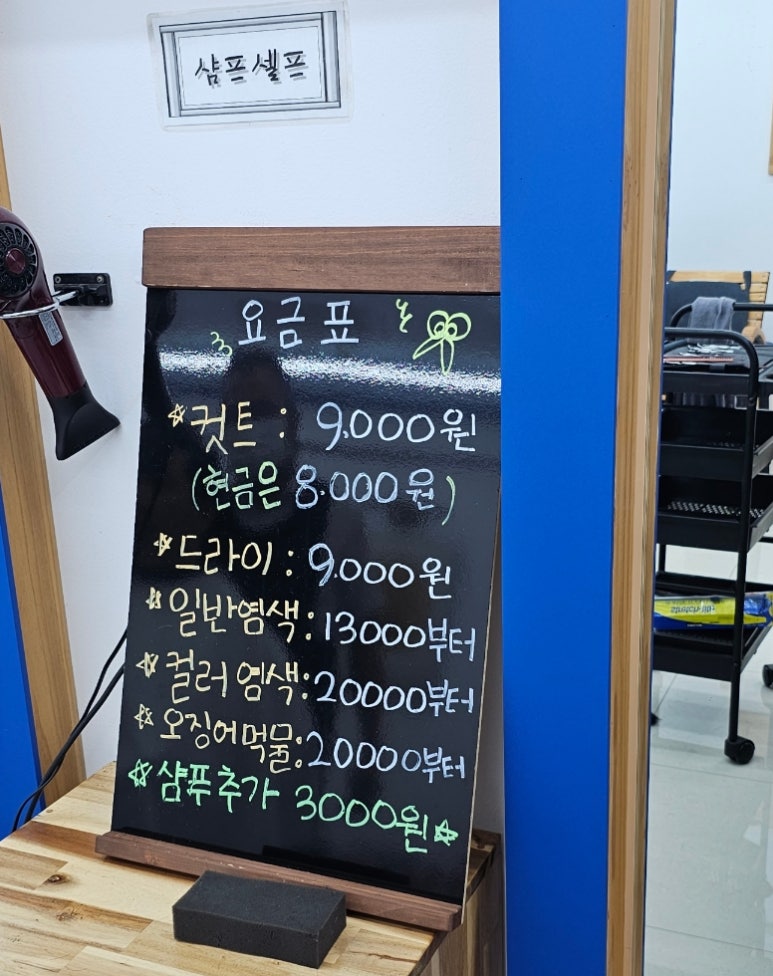 샴프셀프
요금표
컷트 : 9.000원
(현금은 8.000원)
드라이 : 9.000원
일반염색 : 13000부터
컬러염색 : 20000부터
오징어먹물 : 20000부터
샴푸추가 3000원
stretch-tite